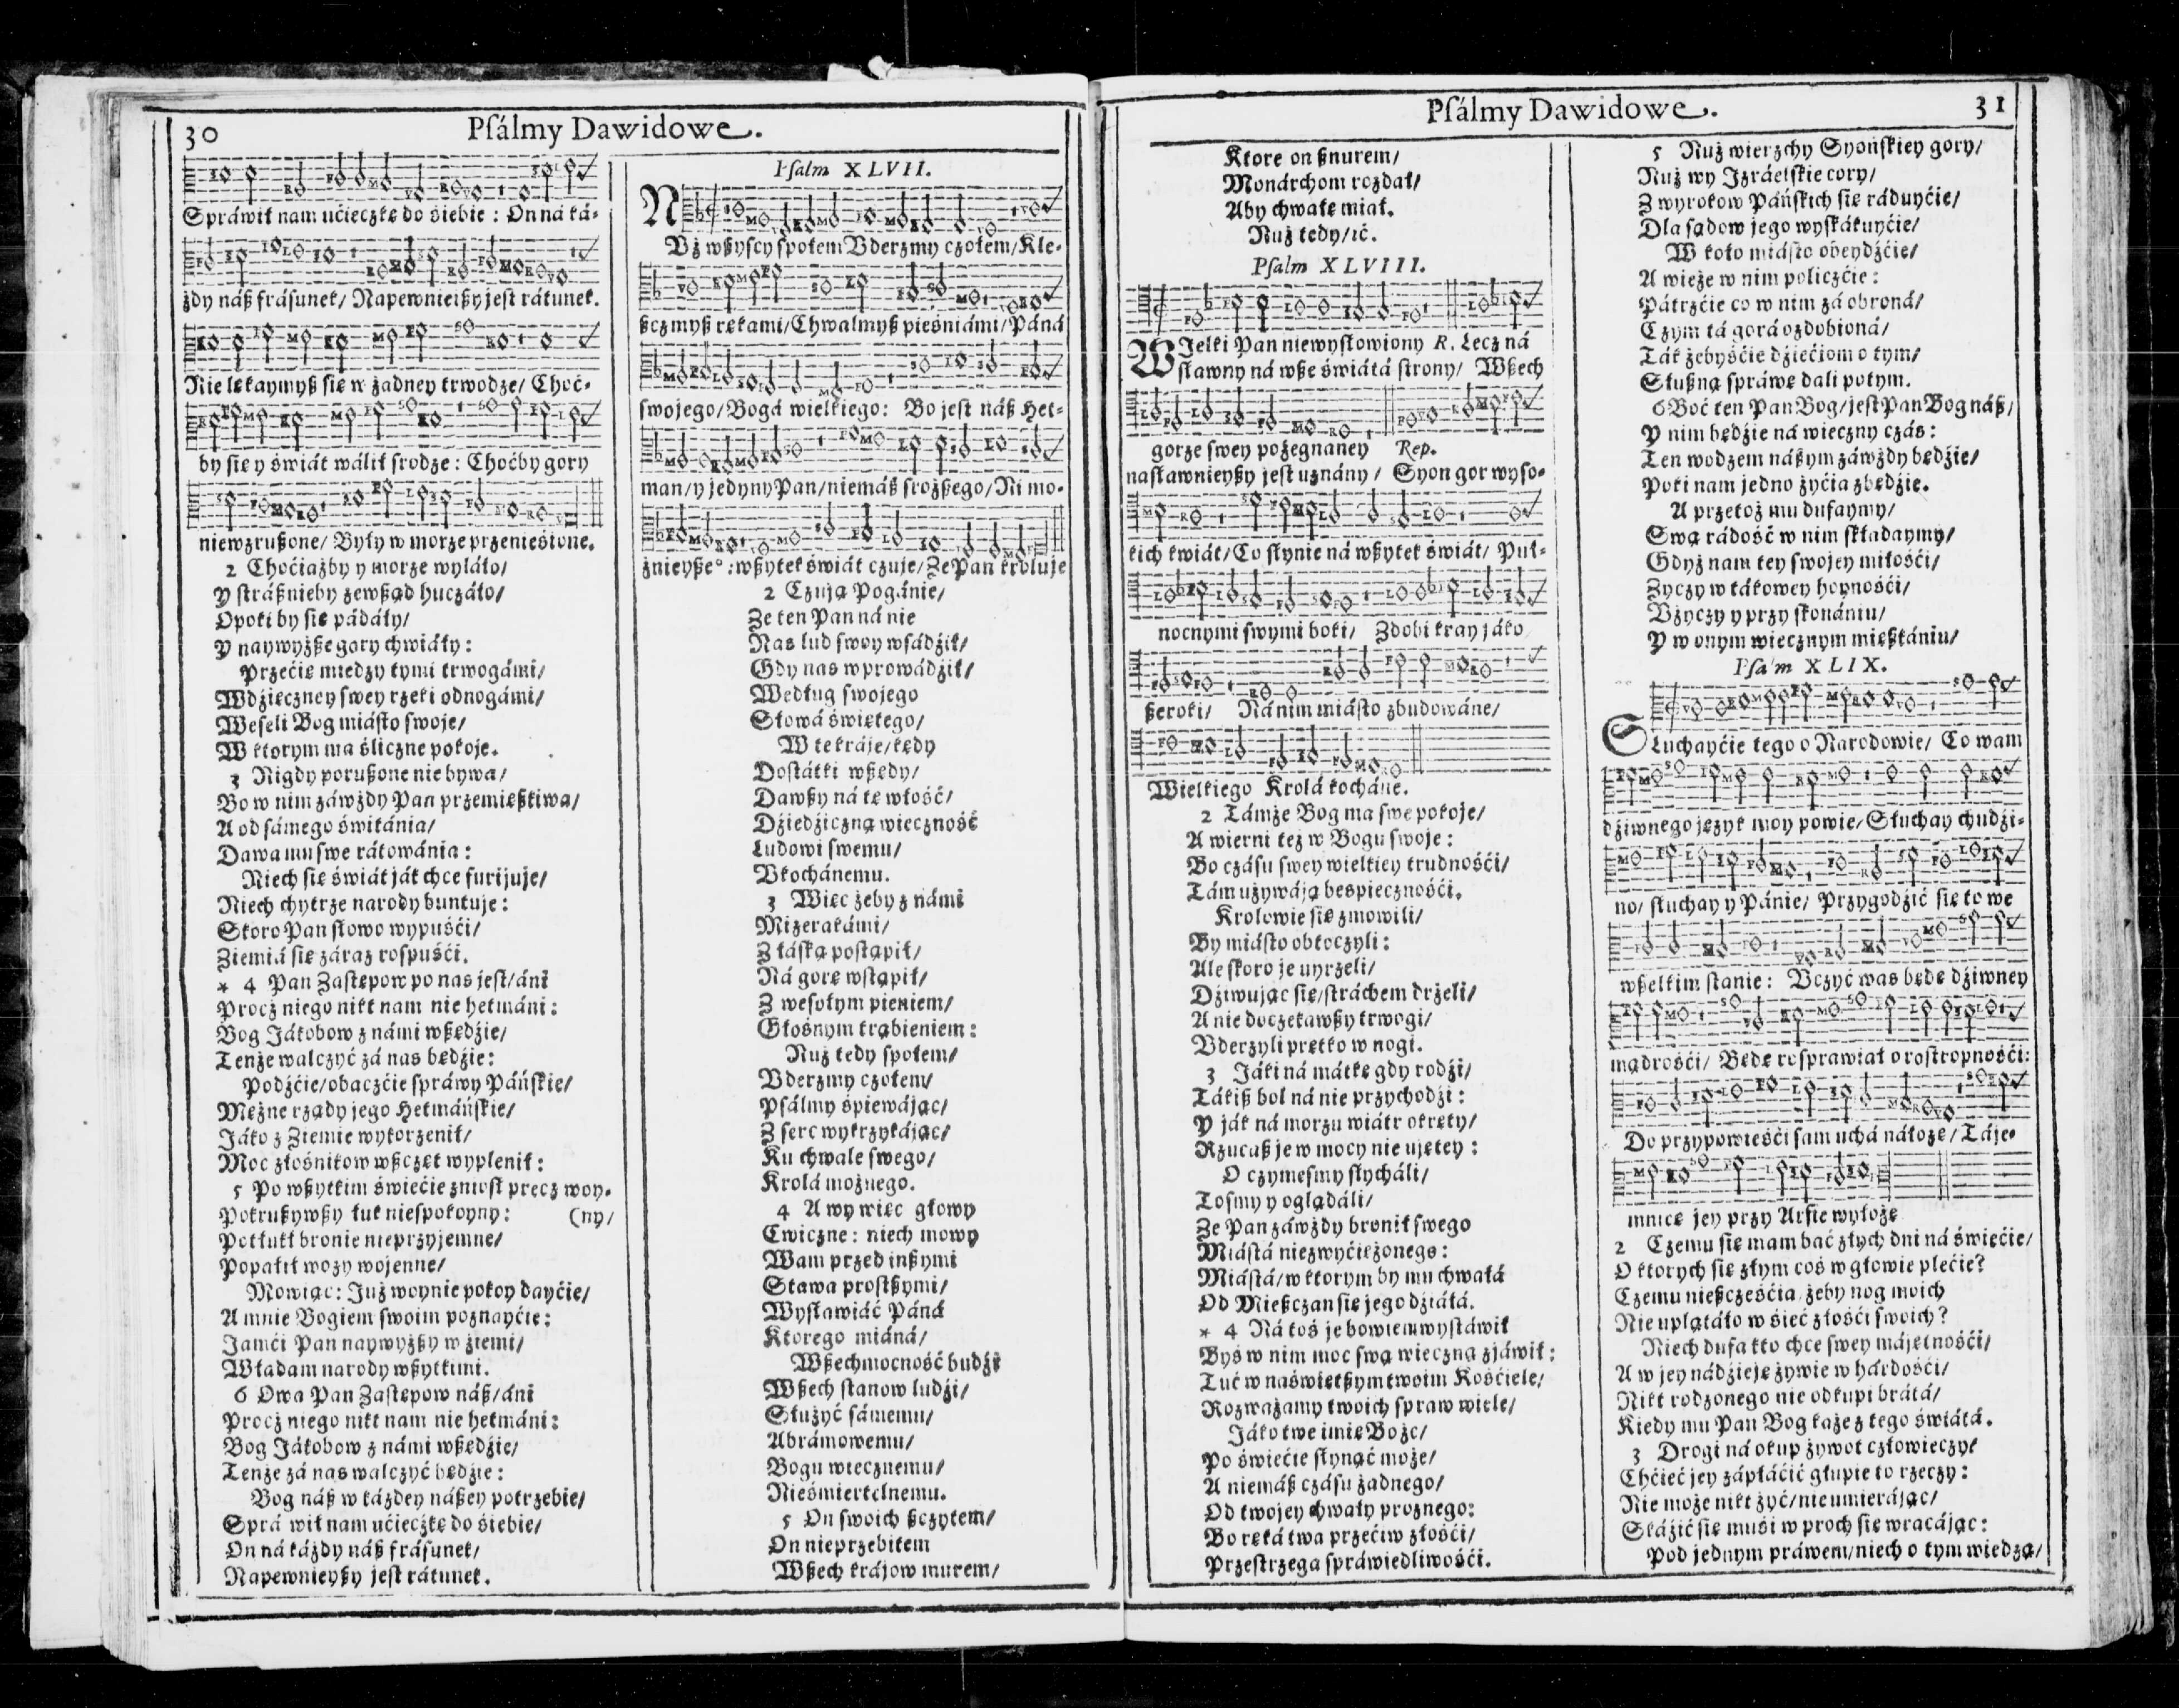 30
Psálmy Dawidowe.
Spráwił nam ućieczkę do śiebie : On ná ká-
żdy náß frásunek/ Napewnieißy jest rátunek.
Nie lękaymyß się w żadney trwodze/ Choć-
by się y świát wálił srodze : Choćby gory
niewzrußone/ Były w morze przenieśione.
2 Choćiażby y morze wylało/
Y stráßnieby zewßąd huczáło/
Opoki by się pádáły/
Y naywyżße gory chwiáły :
Przećię między tymi trwogámi/
Wdźięczney swey rzeki odnogámi/
Weseli Bog miásto swoje/
W ktorym ma śliczne pokoje.
3 Nigdy porußone nie bywa/
Bo w nim záwżdy Pan przemießkiwa/
A od sámego świtánia/
Dawa mu swe rátowánia :
Niech się świát ják chce furijuje/
Niech chytrze narody buntuje :
Skoro Pan słowo wypuśći/
Ziemiá się záraz rospuśći.
* 4 Pan Zastępow po nas jest/áni
Procz niego nikt nam nie hetmáni :
Bog Jákobow z námi wßędźie/
Tenże walczyć zá nas będźie :
Podźćie/obaczćie spráwy Páńskie/
Mężne rządy jego Hetmáńskie/
Jáko z Ziemie wykorzenił/
Moc złośnikow wßczęt wyplenił :
5 Po wßytkim świećie zniosł precz woy-
Pokrußywßy łuk niespokoyny : (ny/
Potłukł bronie nieprzyjemne/
Popalił wozy wojenne/
Mowiąc : Już woynie pokoy dayćie/
A mnie Bogiem swoim poznayćie :
Jamći Pan naywyżßy w źiemi/
Władam narody wßytkimi.
6 Owa Pan Zastępow náß/áni
Procz niego nikt nam nie hetmáni :
Bog Jákobow z námi wßędźie/
Tenże zá nas walczyć będźie :
Bog náß w káżdey náßey potrzebie/
Sprá wił nam ućieczkę do śiebie/
On ná káżdy náß frásunek/
Napewnieyßy jest rátunek.
Psalm XLVII.
NVż wßyscy społem Vderzmy czołem/Kle-
ßczmyß rękami/Chwalmyß pieśniámi/Páná
swojego/Bogá wielkiego: Bo jest náß Het-
man/y jedyny Pan/niemáß srożßego/Ni mo-
żnieyßeº : wßytek świát czuje/Że Pan kroluje
2 Czują Pogánie/
Że ten Pan ná nie
Nas lud swoy wsádźił/
Gdy nas wprowádźił/
Według swojego
Słowá świętego/
W te kráje/kędy
Dostátki wßędy/
Dawßy ná tę włość/
Dźiedźiczną wieczność
Ludowi swemu/
Vkochánemu.
3 Więc żeby z námi
Mizerakámi/
Z łáską postąpił/
Ná gorę wstąpił/
Z wesołym pieniem/
Głośnym trąbieniem :
Nuż tedy społem/
Vderzmy czołem/
Psálmy śpiewájąc/
Z serc wykrzykájąc/
Ku chwale swego/
Krolá możnego.
4 A wy więc głowy
Cwiczne : niech mowy
Wam przed inßymi
Stawa prostßymi/
Wysławiáć Páná
Ktorego miáná/
Wßechmocność budźi
Wßech stanow ludźi/
Służyć sámemu/
Abrámowemu/
Bogu wiecznemu/
Nieśmiertelnemu.
5 On swoich ßczytem/
On nieprzebitem
Wßech krájow murem/
Psálmy Dawidowe.
31
Ktore on ßnurem/
Monárchom rozdał/
Aby chwałę miał.
Nuż tedy/ıć.
Psalm XLVIII.
WJelki Pan niewysłowiony R. Lecz ná
sławny ná wße świátá strony/ Wßech
gorze swey pożegnaney Rep.
nasławnieyßy jest uznány/ Syon gor wyso-
kich kwiát/ Co słynie ná wßytek świát/ Puł-
nocnymi swymi boki/ Zdobi kray jáko
ßeroki/ Ná nim miásto zbudowáne/
Wielkiego Krolá kocháne.
2 Támże Bog ma swe pokoje/
A wierni też w Bogu swoje :
Bo czásu swey wielkiey trudnośći/
Tám używáją bespiecznośći.
Krolowie się zmowili/
By miásto obtoczyli :
Ale skoro je uyrzeli/
Dźiwując się/stráchem drżeli/
A nie doczekawßy trwogi/
Vderzyli prętko w nogi.
3 Jáki ná mátkę gdy rodźi/
Tákiß bol ná nie przychodźi :
Y ják ná morzu wiátr okręty/
Rzucaß je w mocy nie ujętey :
O czymesmy słycháli/
Tosmy y oglądáli/
Że Pan záwżdy bronił swego
Miástá niezwyćiężonego :
Miástá/w ktorym by mu chwałá
Od Mießczan się jego dźiałá.
* 4 Ná toś je bowiem wystáwił
Byś w nim moc swą wieczną zjáwił :
Tuć w naświętßym twoim Kośćiele/
Rozważamy twoich spraw wiele/
Jáko twe imię Boże/
Po świećie słynąć może/
A niemáß czásu żadnego/
Od twojey chwały prożnego:
Bo ręká twa przećiw złośći/
Przestrzega spráwiedliwośći.
5 Nuż wierzchy Syońskiey gory/
Nuż wy Jzráelskie cory/
Z wyrokow Páńskich się ráduyćie/
Dla sądow jego wyskákuyćie/
W koło miásto obeydźćie/
A wieże w nim policzćie :
Pátrzćie co w nim zá obroná/
Czym tá gorá ozdobioná/
Ták żebyśćie dźiećiom o tym/
Słußną spráwę dali potym.
6 Boć ten Pan Bog/jest Pan Bog náß/
Y nim będźie ná wieczny czás :
Ten wodzem náßym záwżdy będźie/
Poki nam jedno żyćia zbędźie.
A przetoż mu dufaymy/
Swą rádość w nim składaymy/
Gdyż nam tey swojey miłośći/
Zyczy w tákowey hoynośći/
Vżyczy y przy skonániu/
Y w onym wiecznym mießkániu/
Psalm XLIX.
SŁuchayćie tego o Narodowie/ Co wam
dźiwnego język moy powie/ Słuchay chudźi-
no/ słuchay y Pánie/ Przygodźić się to we
wßelkim stanie : Vczyć was będę dźiwney
mądrośći/ Będę rosprawiał o rostropnośći:
Do przypowieśći sam uchá náłożę/ Táje-
mnicę jey przy Arfie wyłożę
2 Czemu się mam bać złych dni ná świećie/
O ktorych się złym coś w głowie plećie?
Czemu nießczęśćia, żeby nog moich
Nie uplątáło w śieć złośći swoich?
Niech dufa kto chce swey májętnośći/
A w jey nádźieję żywie w hárdośći/
Nikt rodzonego nie odkupi brátá/
Kiedy mu Pan Bog każe z tego świátá.
3 Drogi ná okup żywot człowieczy/
Chćieć jey zápłáćić głupie to rzeczy :
Nie może nikt żyć/nie umierájąc/
Skáźić się muśi w proch się wracájąc :
Pod jednym práwem/niech o tym wiedzą/